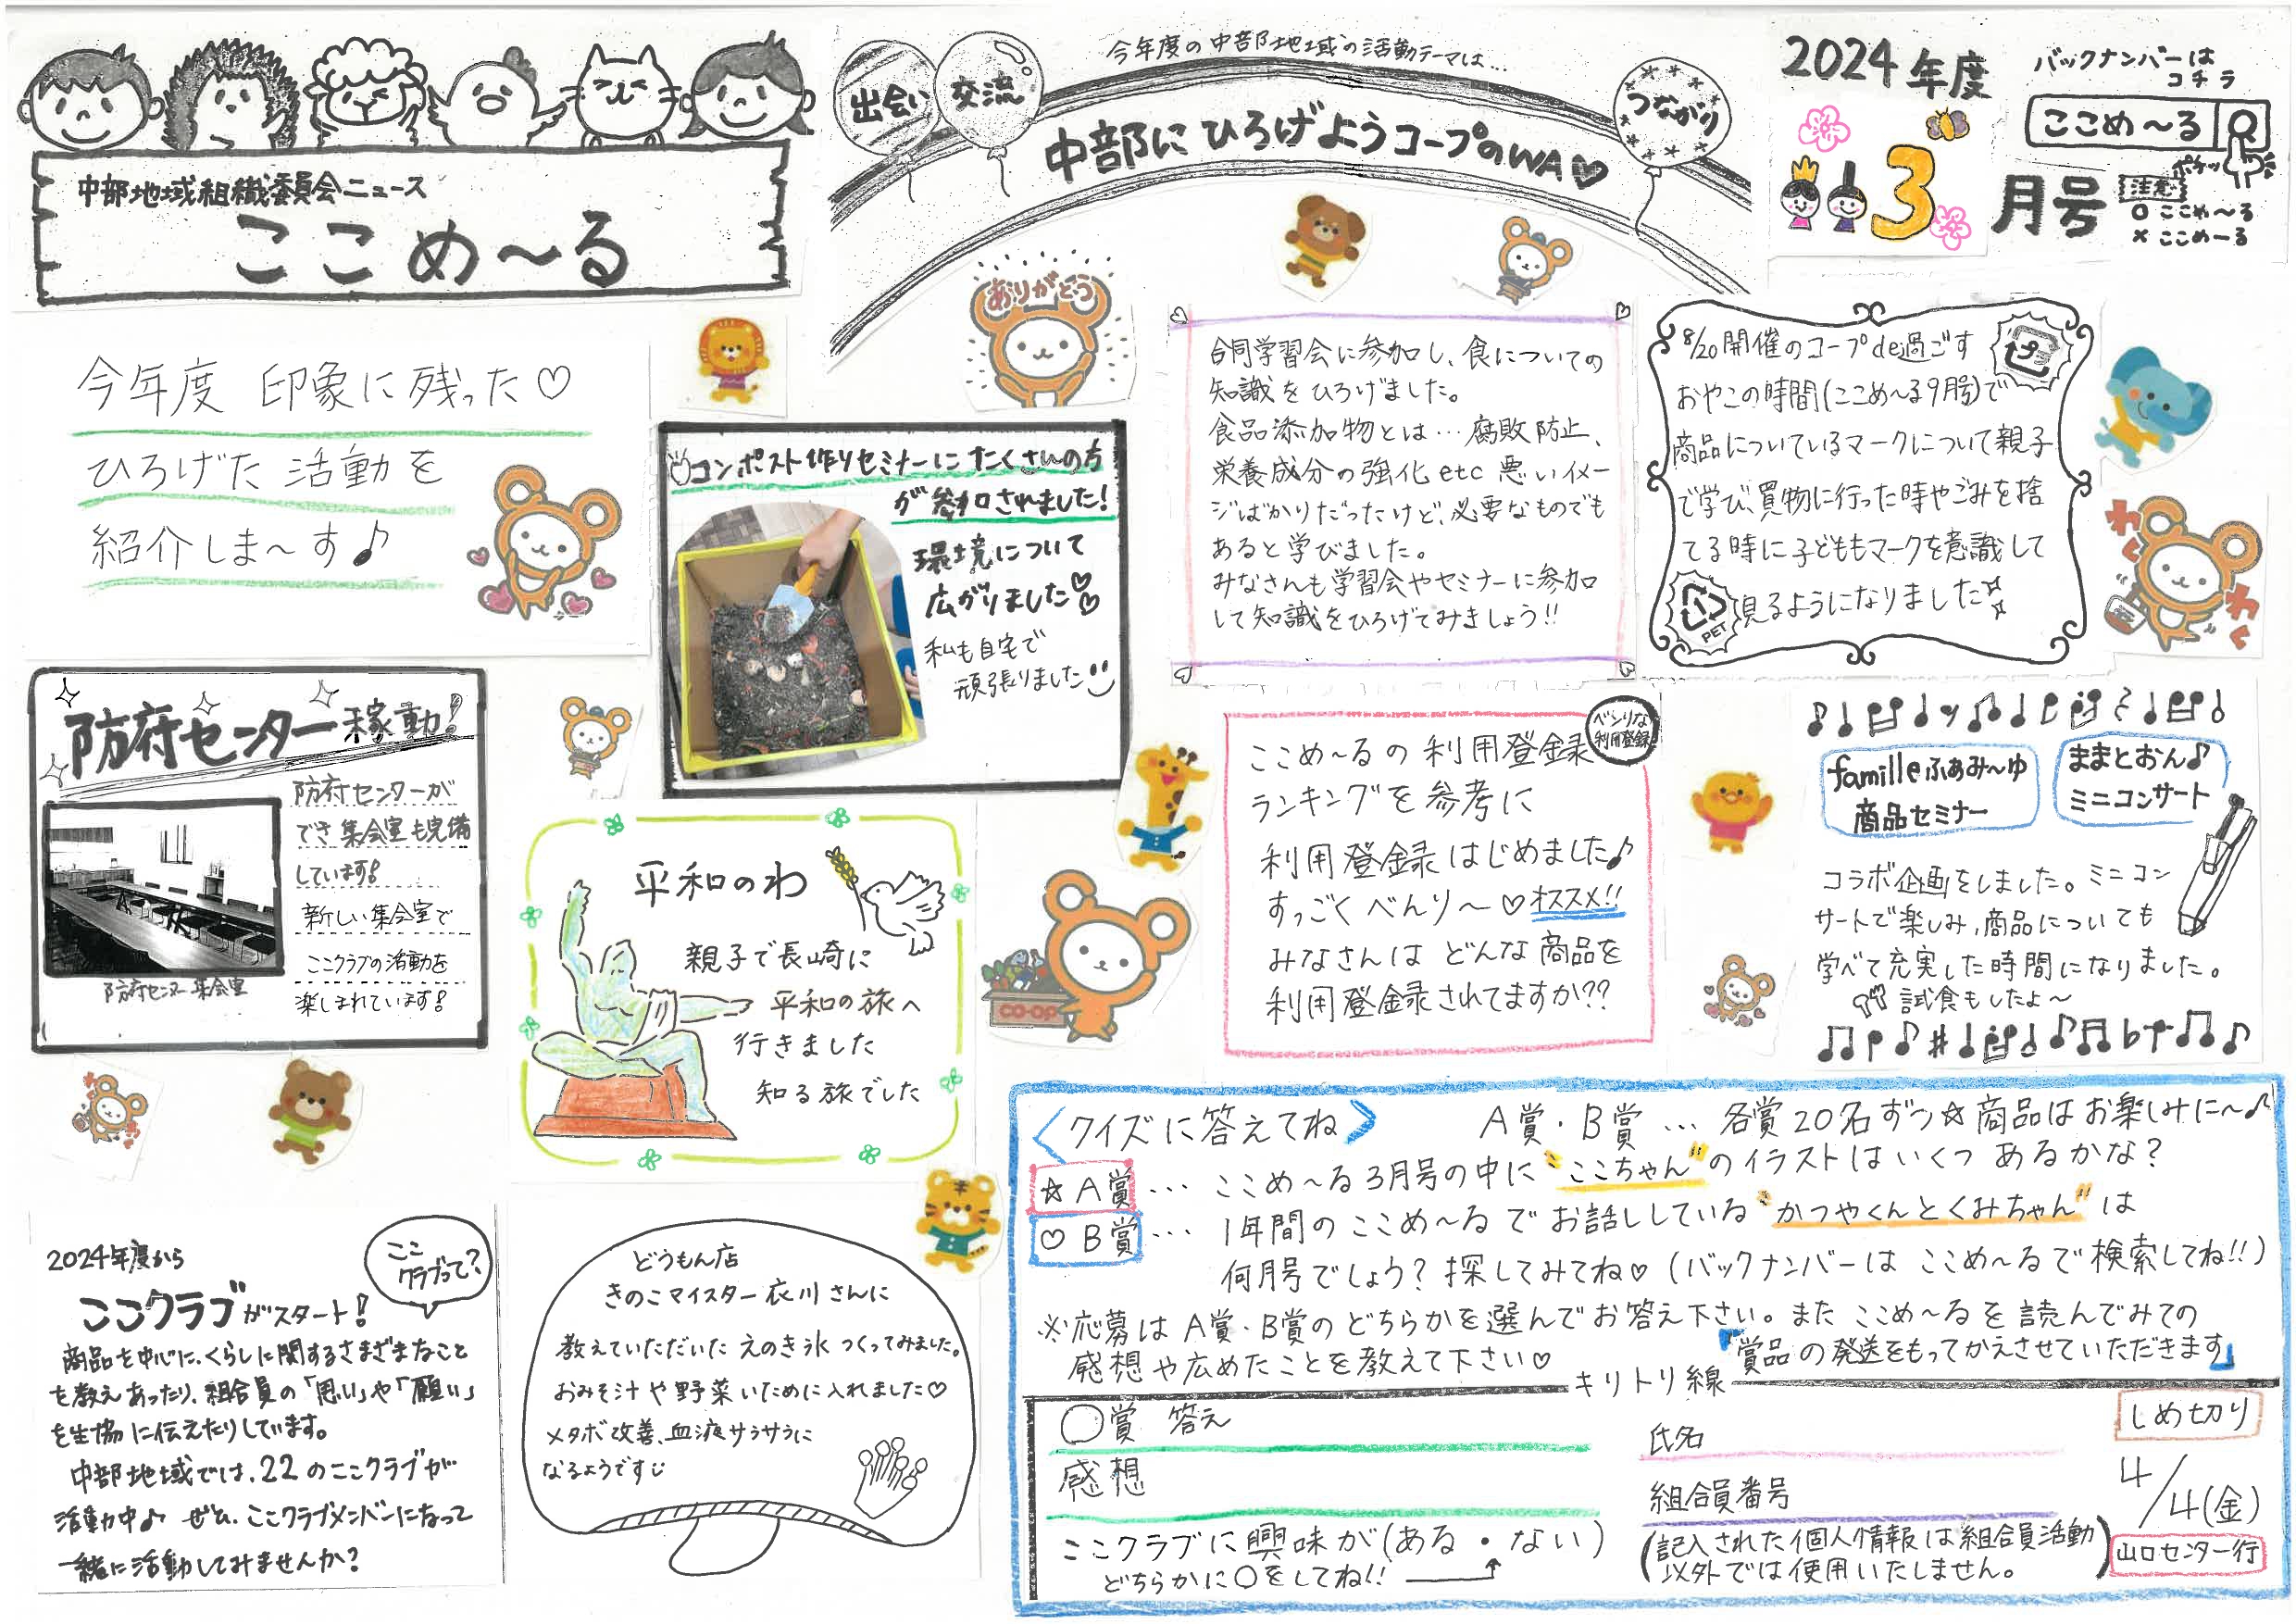 中部地域組織委員会ニュース
ここめ～る
今年度の中部地域の活動テーマは…
出会い
交流
つながり
中部にひろげようコープのWA♡
2024年度
3月号
バックナンバーは
コチラ
ここめ～る
ポチッ
注意
○ ここめ～る
× ここめーる
今年度 印象に残った♡
ひろげた 活動を
紹介しま～す♪
ありがとう
コンポスト作りセミナーにたくさんの方
が参加されました!
環境について
広がりました♡
私も自宅で
頑張りました
合同学習会に参加し、食についての
知識をひろげました。
食品添加物とは…腐敗防止、
栄養成分の強化etc 悪いイメー
ジばかりだったけど、必要なものでも
あると学びました。
みなさんも学習会やセミナーに参加
して知識をひろげてみましょう!!
8/20開催のコープde過ごす
おやこの時間(ここめ～る9月号)で
商品についているマークについて親子
で学び、買物に行った時やごみを捨
てる時に子どももマークを意識して
見るようになりました☆
1
PET
わく
わく
防府センター稼動!
防府センターが
でき集会室も完備
しています!
新しい集会室で
ここクラブの活動を
楽しまれています!
防府センター集会室
平和のわ
親子で長崎に
平和の旅へ
行きました
知る旅でした
co-op
ベンリな
利用登録
ここめ～るの利用登録
ランキングを参考に
利用登録はじめました♪
すっごくべんり～♡オススメ!!
みなさんは どんな商品を
利用登録されてますか??
familleふぁみ～ゆ
商品セミナー
ままとおん♪
ミニコンサート
コラボ企画をしました。ミニコン
サートで楽しみ、商品についても
学べて充実した時間になりました。
試食もしたよ～
2024年度から
ここクラブがスタート!
ここ
クラブって?
商品を中心に、くらしに関するさまざまなこと
を教えあったり、組合員の「思い」や「願い」
を生協に伝えたりしています。
中部地域では、22のここクラブが
活動中♪ ぜひ、ここクラブメンバーになって
一緒に活動してみませんか?
どうもん店
きのこマイスター衣川さんに
教えていただいた えのき氷 つくってみました。
おみそ汁や野菜いために入れました♡
メタボ改善、血液サラサラに
なるようです
〈クイズに答えてね〉 A賞・B賞…各賞20名ずつ☆商品はお楽しみに～♪
☆A賞… ここめ～る3月号の中に"ここちゃん"のイラストはいくつ あるかな?
♡B賞… 1年間のここめ～るでお話ししている"かつやくんとくみちゃん"は
何月号でしょう?探してみてね♡(バックナンバーは ここめ～るで検索してね!!)
※応募はA賞・B賞のどちらかを選んでお答え下さい。また ここめ～るを読んでみての
感想や広めたことを教えて下さい♡ 「賞品の発送をもってかえさせていただきます」
キリトリ線
○賞 答え
感想
ここクラブに興味が(ある・ない)
どちらかに○をしてね!!
氏名
組合員番号
(記入された個人情報は組合員活動
以外では使用いたしません。)
しめ切り
4/4(金)
山口センター行